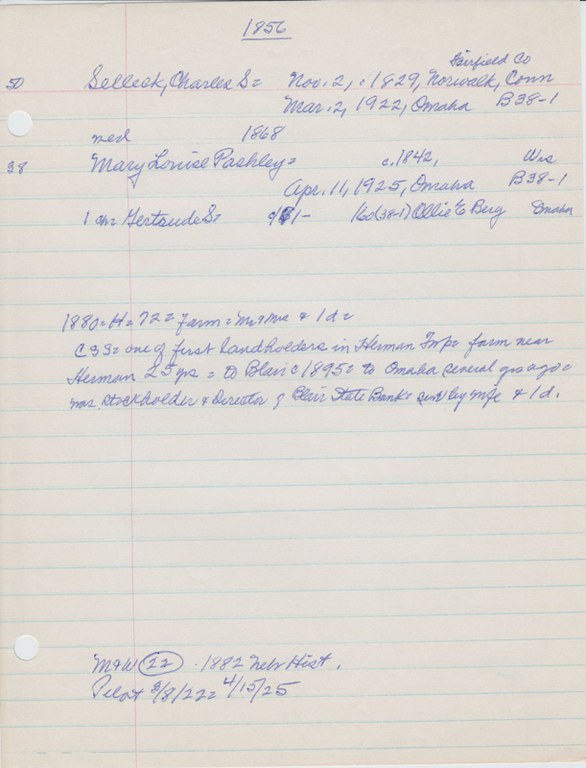 1856
Fairfield Co
50 Selleck, Charles S= Nov. 2, 1829, Norwalk, Conn
Mar. 2, 1922, Omaha B38-1
med 1868
38 Mary Louise Pashley= c.1842, Wis
Apr. 11, 1925, Omaha B38-1
1 ch Gertrude S= 71- (38-1) Ollie E Berg Omaha
1880=H=72= Farm= Mr & Mrs & 1d=
CSS= one of first landholders in Herman Twp= farm near
Herman 25 yrs = to Blair c 1895= to Omaha several yrs ago=
was stockholder & Director of Blair State Bank= surv by wife & 1d.
M&W (22) . 1882 Nebr Hist.
Pilot 3/8/22= 4/15/25